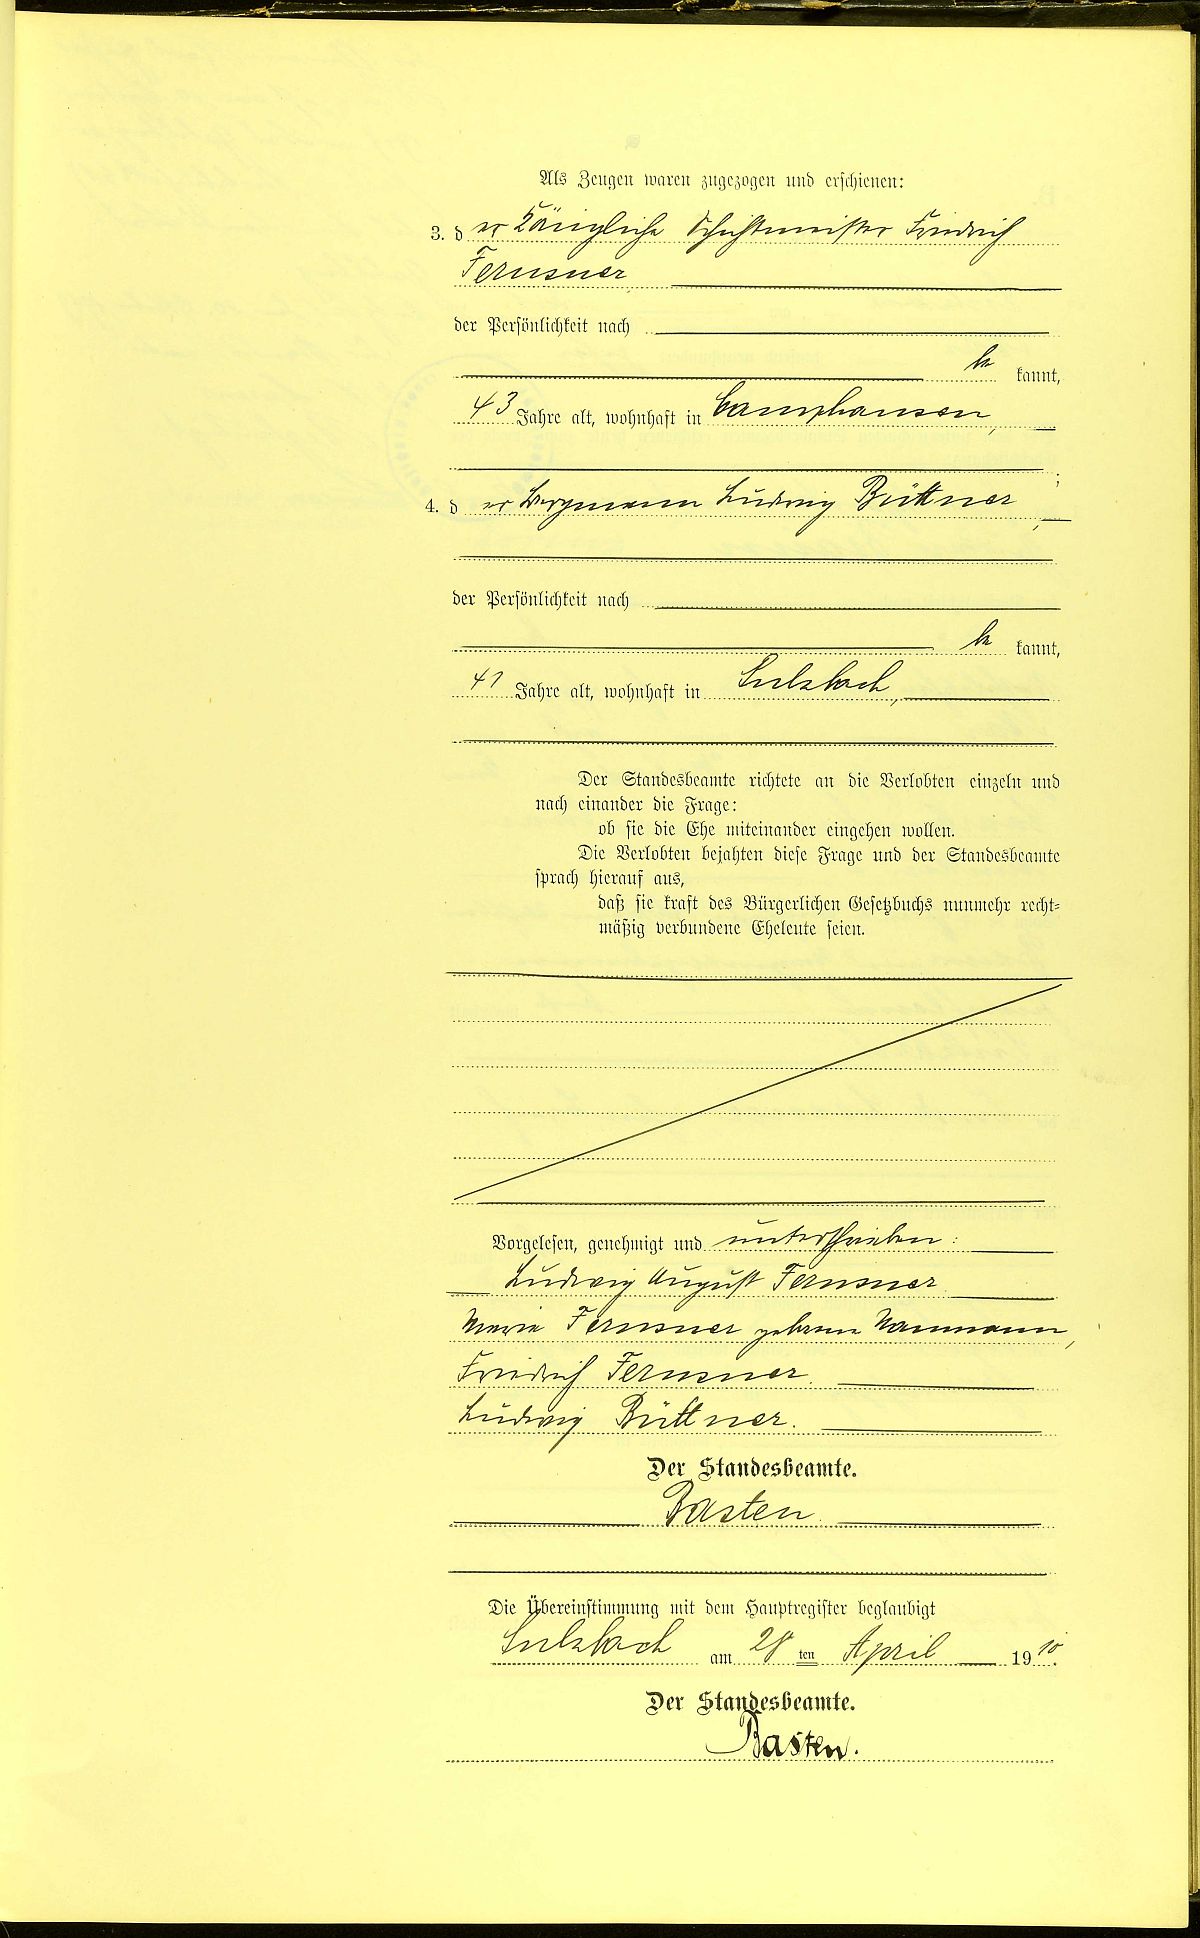 Als Zeugen waren zugezogen und erschienen:
3. d er Königliche Schichtmeister Friedrich
Fernsner
der Persönlichkeit nach
be kannt,
43 Jahre alt, wohnhaft in Camphausen,
;
4. d er Bergmann Ludwig Büttner,
der Persönlichkeit nach
be kannt,
41 Jahre alt, wohnhaft in Sulzbach,
Der Standesbeamte richtete an die Verlobten einzeln und
nach einander die Frage:
ob sie die Ehe miteinander eingehen wollen.
Die Verlobten bejahten diese Frage und der Standesbeamte
sprach hierauf aus,
daß sie kraft des Bürgerlichen Gesetzbuchs nunmehr recht-
mäßig verbundene Eheleute seien.
Vorgelesen, genehmigt und unterschrieben:
Ludwig August Fernsner
Maria Fernsner geborene Naumann,
Friedrich Fernsner.
Ludwig Büttner.
Der Standesbeamte.
Basten.
Die Übereinstimmung mit dem Hauptregister beglaubigt
Sulzbach am 28 ten April 1910.
Der Standesbeamte.
Basten.